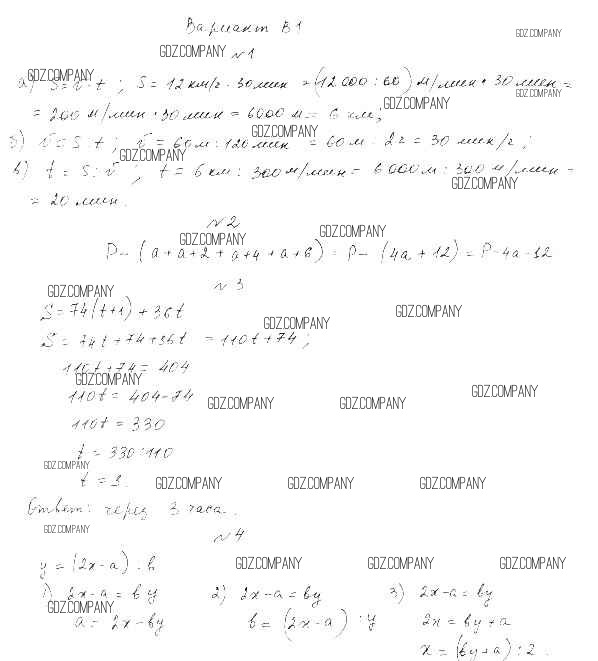 Вариант В1
GDZ.COMPANY
GDZ.COMPANY
№1
GDZ.COMPANY
а) S = v · t ; S = 12 км/г · 30 мин = (12 000 : 60) м/мин · 30 мин =
GDZ.COMPANY
= 200 м/мин · 30 мин = 6000 м = 6 км;
GDZ.COMPANY
GDZ.COMPANY
б) v = S t ; v = 60 м : 120 мин = 60 м : 2 г = 30 мин/г ;
GDZ.COMPANY
в) t = S : v ; t = 6 км : 300 м/мин = 6 000 м : 300 м/мин =
GDZ.COMPANY
= 20 мин.
№2
GDZ.COMPANY GDZ.COMPANY
P - (a + a + 2 + a + 4 + a + 6) = P - (4a + 12) = P - 4a - 12
№3
GDZ.COMPANY
S = 74(t+1) + 36t
GDZ.COMPANY
GDZ.COMPANY
S = 74t + 74 + 36t = 110t + 74 ;
110t + 74 = 404
GDZ.COMPANY
110t = 404 - 74
GDZ.COMPANY
GDZ.COMPANY GDZ.COMPANY
110t = 330
t = 330 : 110
GDZ.COMPANY
t = 3.
GDZ.COMPANY GDZ.COMPANY GDZ.COMPANY
Ответ: через 3 часа.
GDZ.COMPANY
№4
y = (2x - a) : b
GDZ.COMPANY GDZ.COMPANY GDZ.COMPANY
1) 2x - a = by 2) 2x - a = by 3) 2x - a = by
GDZ.COMPANY
a = 2x - by b = (2x - a) : y 2x = by + a
x = (by + a) : 2 .